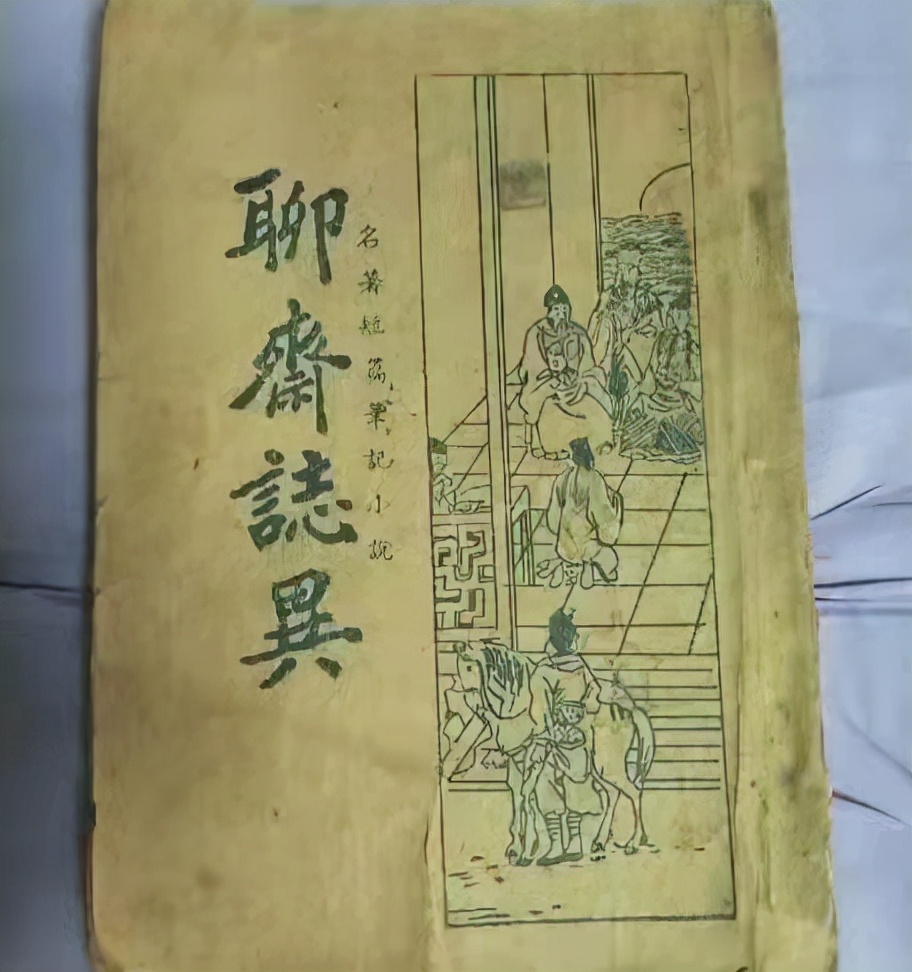 名著短篇筆記小說
聊齋誌異